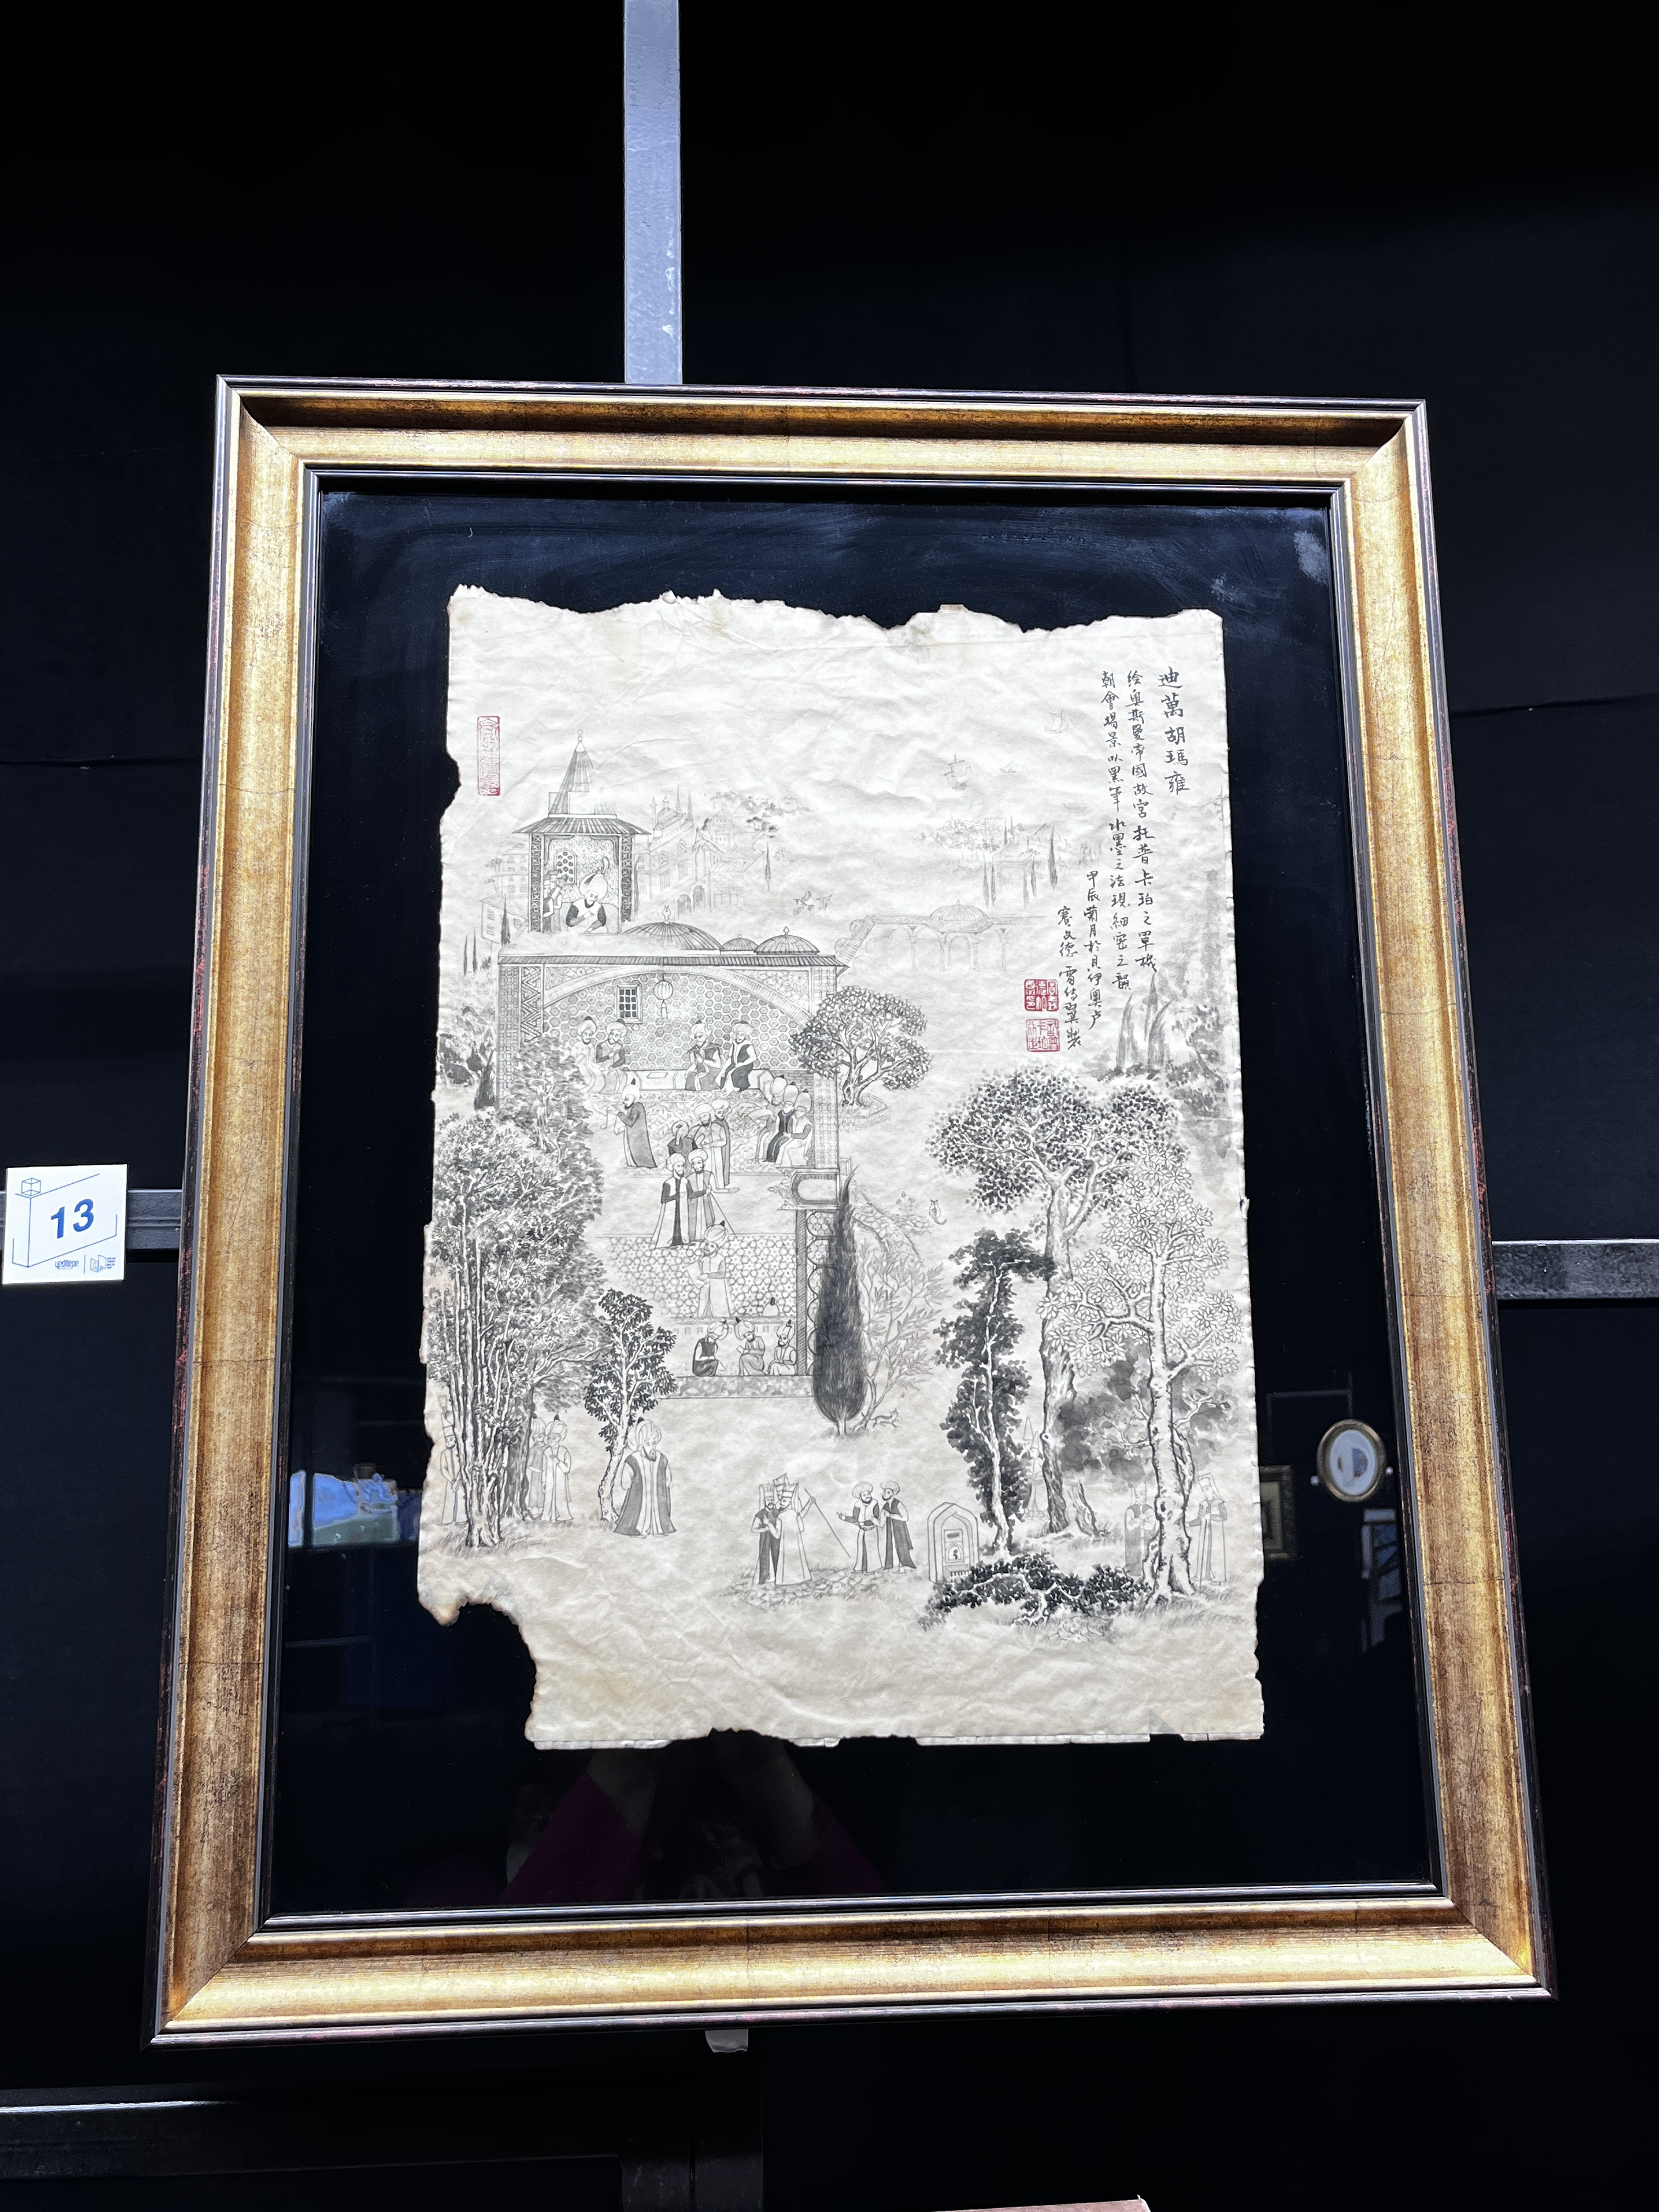 迪萬胡瑪雍
绘奥斯曼帝國故宮托普卡珀之單機
朝會場景以黑筆水墨之法現細密之韻
甲辰菊月於貝伊奧卢
賽文德
13
yeditepe